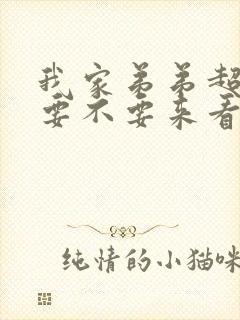 我家弟弟超
要不要来看
纯情的小猫咪